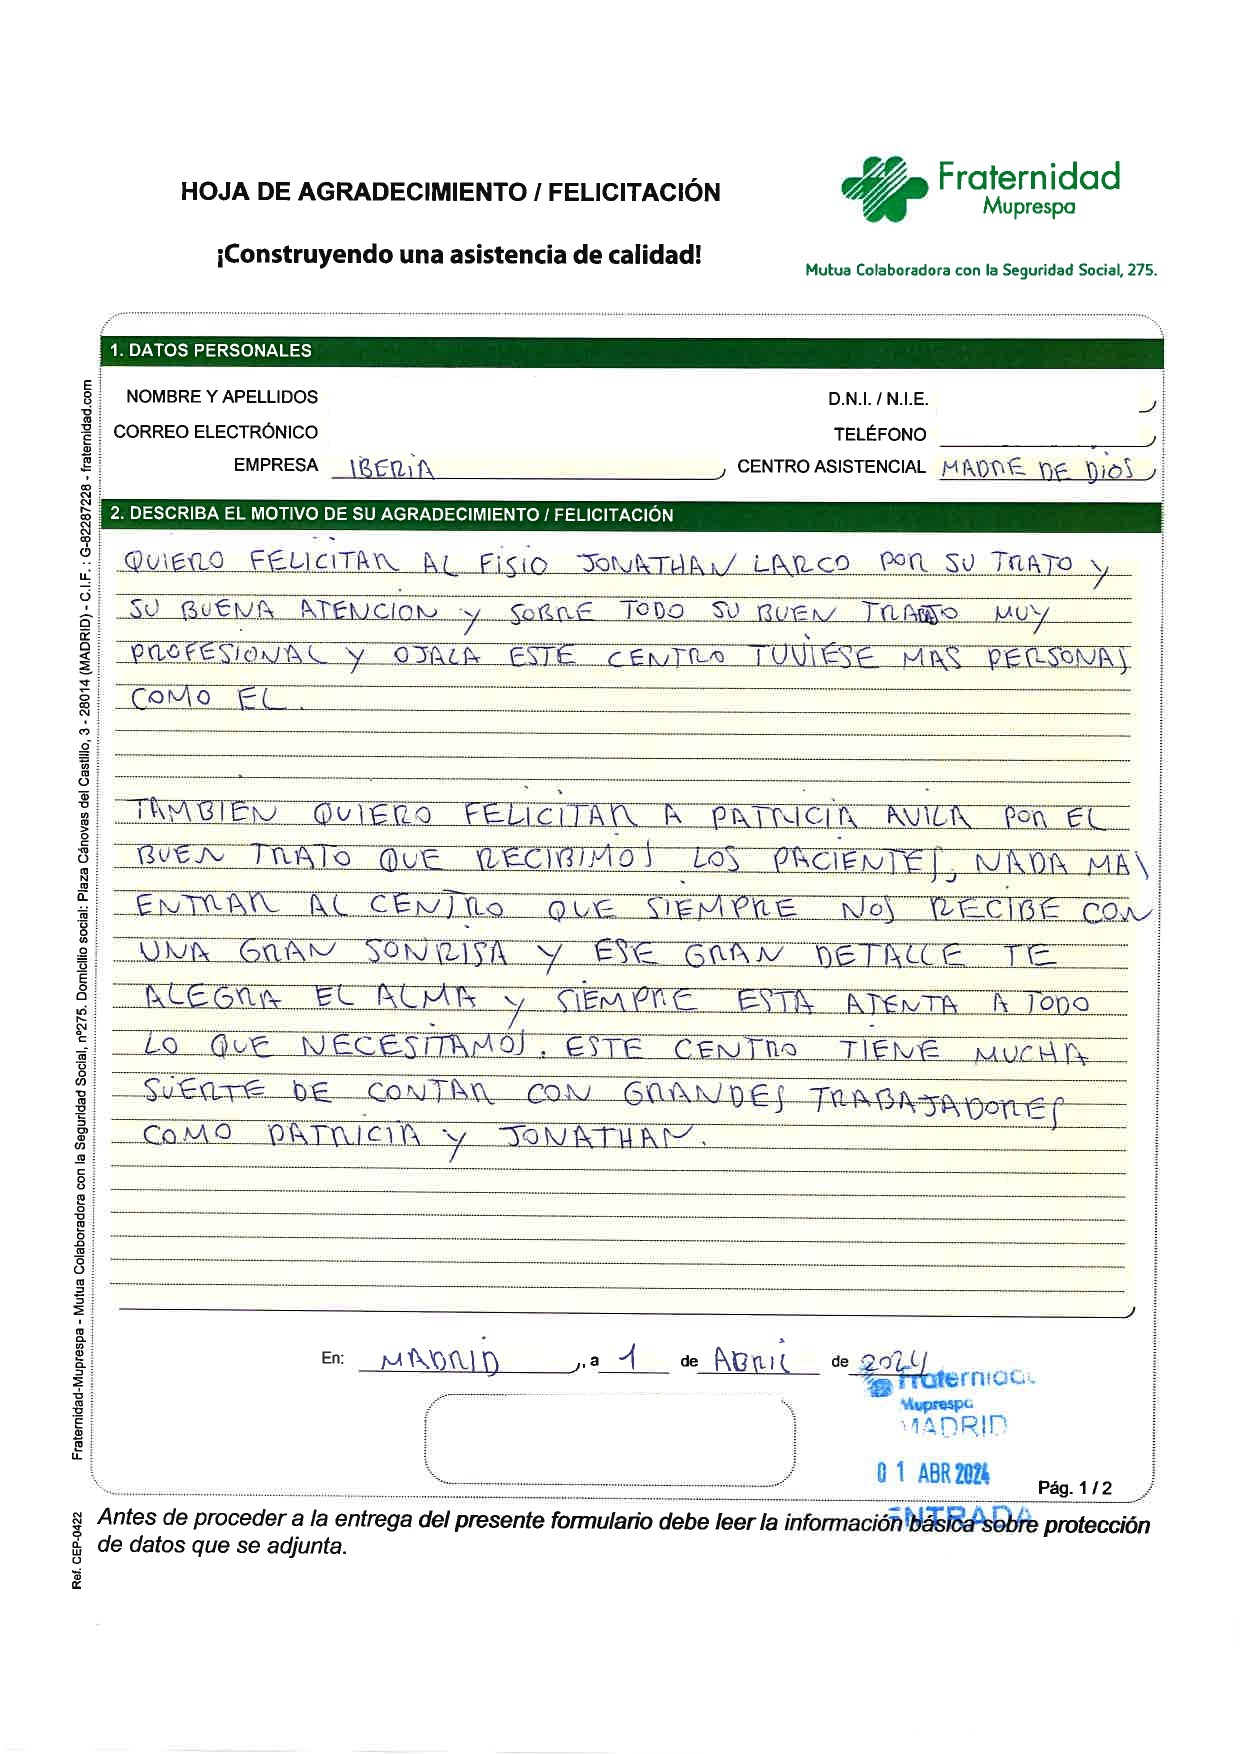 HOJA DE AGRADECIMIENTO / FELICITACIÓN
¡Construyendo una asistencia de calidad!
Fraternidad
Muprespa
Mutua Colaboradora con la Seguridad Social, 275.
1. DATOS PERSONALES
NOMBRE Y APELLIDOS
D.N.I. / N.I.E.
CORREO ELECTRÓNICO
TELÉFONO
EMPRESA IBERIA
CENTRO ASISTENCIAL MADRE DE DIOS
2. DESCRIBA EL MOTIVO DE SU AGRADECIMIENTO / FELICITACIÓN
QUIERO FELICITAR AL FISIO JONATHAN LARCO POR SU TRATO Y
SU BUENA ATENCION Y SOBRE TODO SU BUEN TRABAJO MUY
PROFESIONAL Y OJALA ESTE CENTRO TUVIESE MAS PERSONAS
COMO EL.
TAMBIEN QUIERO FELICITAR A PATRICIA AVILA POR EL
BUEN TRATO QUE RECIBIMOS LOS PACIENTES, NADA MAS
ENTRAR AL CENTRO QUE SIEMPRE NOS RECIBE CON
UNA GRAN SONRISA Y ESE GRAN DETALLE TE
ALEGRA EL ALMA Y SIEMPRE ESTA ATENTA A TODO
LO QUE NECESITAMOS. ESTE CENTRO TIENE MUCHA
SUERTE DE CONTAR CON GRANDES TRABAJADORES
COMO PATRICIA Y JONATHAN.
En: MADRID, a 1 de ABRIL de 2024
Fraternidad
Muprespa
MADRID
01 ABR 2024
ENTRADA
Pág. 1 / 2
Antes de proceder a la entrega del presente formulario debe leer la información básica sobre protección
de datos que se adjunta.
Fraternidad-Muprespa - Mutua Colaboradora con la Seguridad Social, nº275. Domicilio social: Plaza Cánovas del Castillo, 3 - 28014 (MADRID) - C.I.F. : G-82287228 - fraternidad.com
Ref. CEP-0422